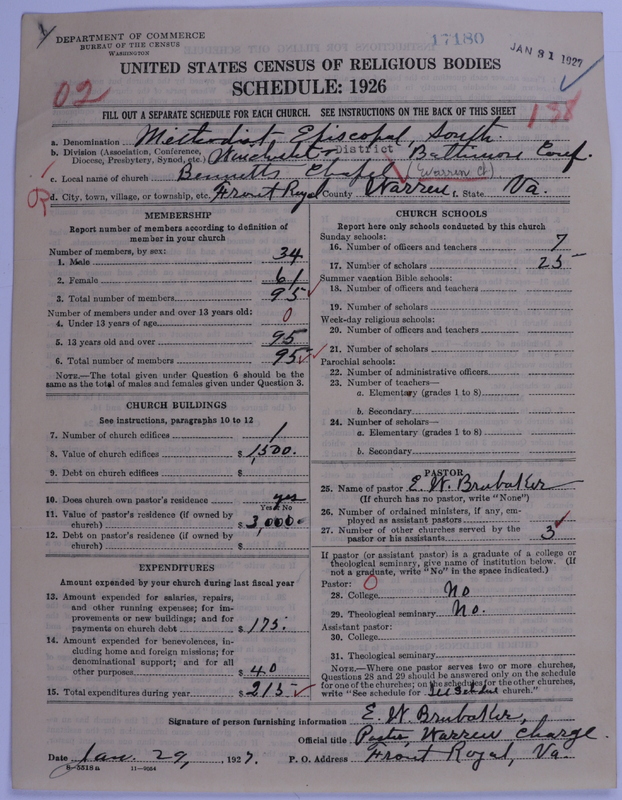 DEPARTMENT OF COMMERCE
BUREAU OF THE CENSUS
WASHINGTON
17180
JAN 31 1927
UNITED STATES CENSUS OF RELIGIOUS BODIES
SCHEDULE: 1926
02
138
FILL OUT A SEPARATE SCHEDULE FOR EACH CHURCH. SEE INSTRUCTIONS ON THE BACK OF THIS SHEET
a. Denomination Methodist Episcopal South.
b. Division (Association, Conference, Diocese, Presbytery, Synod, etc.) Winchester District Baltimore Conf.
c. Local name of church Bennetts Chapel (Warren Ct)
d. City, town, village, or township, etc. Front Royal County Warren f. State Va.
MEMBERSHIP
Report number of members according to definition of
member in your church
Number of members, by sex:
1. Male 34
2. Female 61
3. Total number of members 95
Number of members under and over 13 years old:
4. Under 13 years of age 0
5. 13 years old and over 95
6. Total number of members 95
NOTE.—The total given under Question 6 should be
same as the total of males and females given under Question 3.
CHURCH BUILDINGS
See instructions, paragraphs 10 to 12
7. Number of church edifices 1
8. Value of church edifices $ 1,500.
9. Debt on church edifices $
10. Does church own pastor's residence yes
Yes or No
11. Value of pastor's residence (if owned by
church) $ 3,000.
12. Debt on pastor's residence (if owned by
church) $
EXPENDITURES
Amount expended by your church during last fiscal year
13. Amount expended for salaries, repairs,
and other running expenses; for im-
provements or new buildings; and for
payments on church debt $ 175.
14. Amount expended for benevolences, in-
cluding home and foreign missions; for
denominational support; and for all
other purposes $ 40
15. Total expenditures during year $ 215
CHURCH SCHOOLS
Report here only schools conducted by this church
Sunday schools:
16. Number of officers and teachers 7
17. Number of scholars 25
Summer vacation Bible schools:
18. Number of officers and teachers
19. Number of scholars
Week-day religious schools:
20. Number of officers and teachers
21. Number of scholars
Parochial schools:
22. Number of administrative officers
23. Number of teachers—
a. Elementary (grades 1 to 8)
b. Secondary
24. Number of scholars—
a. Elementary (grades 1 to 8)
b. Secondary
PASTOR
25. Name of pastor E. W. Brubaker
(If church has no pastor, write "None")
26. Number of ordained ministers, if any, em-
ployed as assistant pastors
27. Number of other churches served by the
pastor or his assistants 3
If pastor (or assistant pastor) is a graduate of a college or
theological seminary, give name of institution below. (If
not a graduate, write "No" in the space indicated.)
Pastor: 0
28. College No
29. Theological seminary No.
Assistant pastor:
30. College
31. Theological seminary
NOTE.—Where one pastor serves two or more churches,
Questions 28 and 29 should be answered only on the schedule
for one of the churches; on the schedules for the other churches,
write "See schedule for church."
Signature of person furnishing information E. W. Brubaker,
Official title Pastor, Warren Charge.
Date Jan. 29, 1927. P. O. Address Front Royal, Va.
8-5518a 11-9054